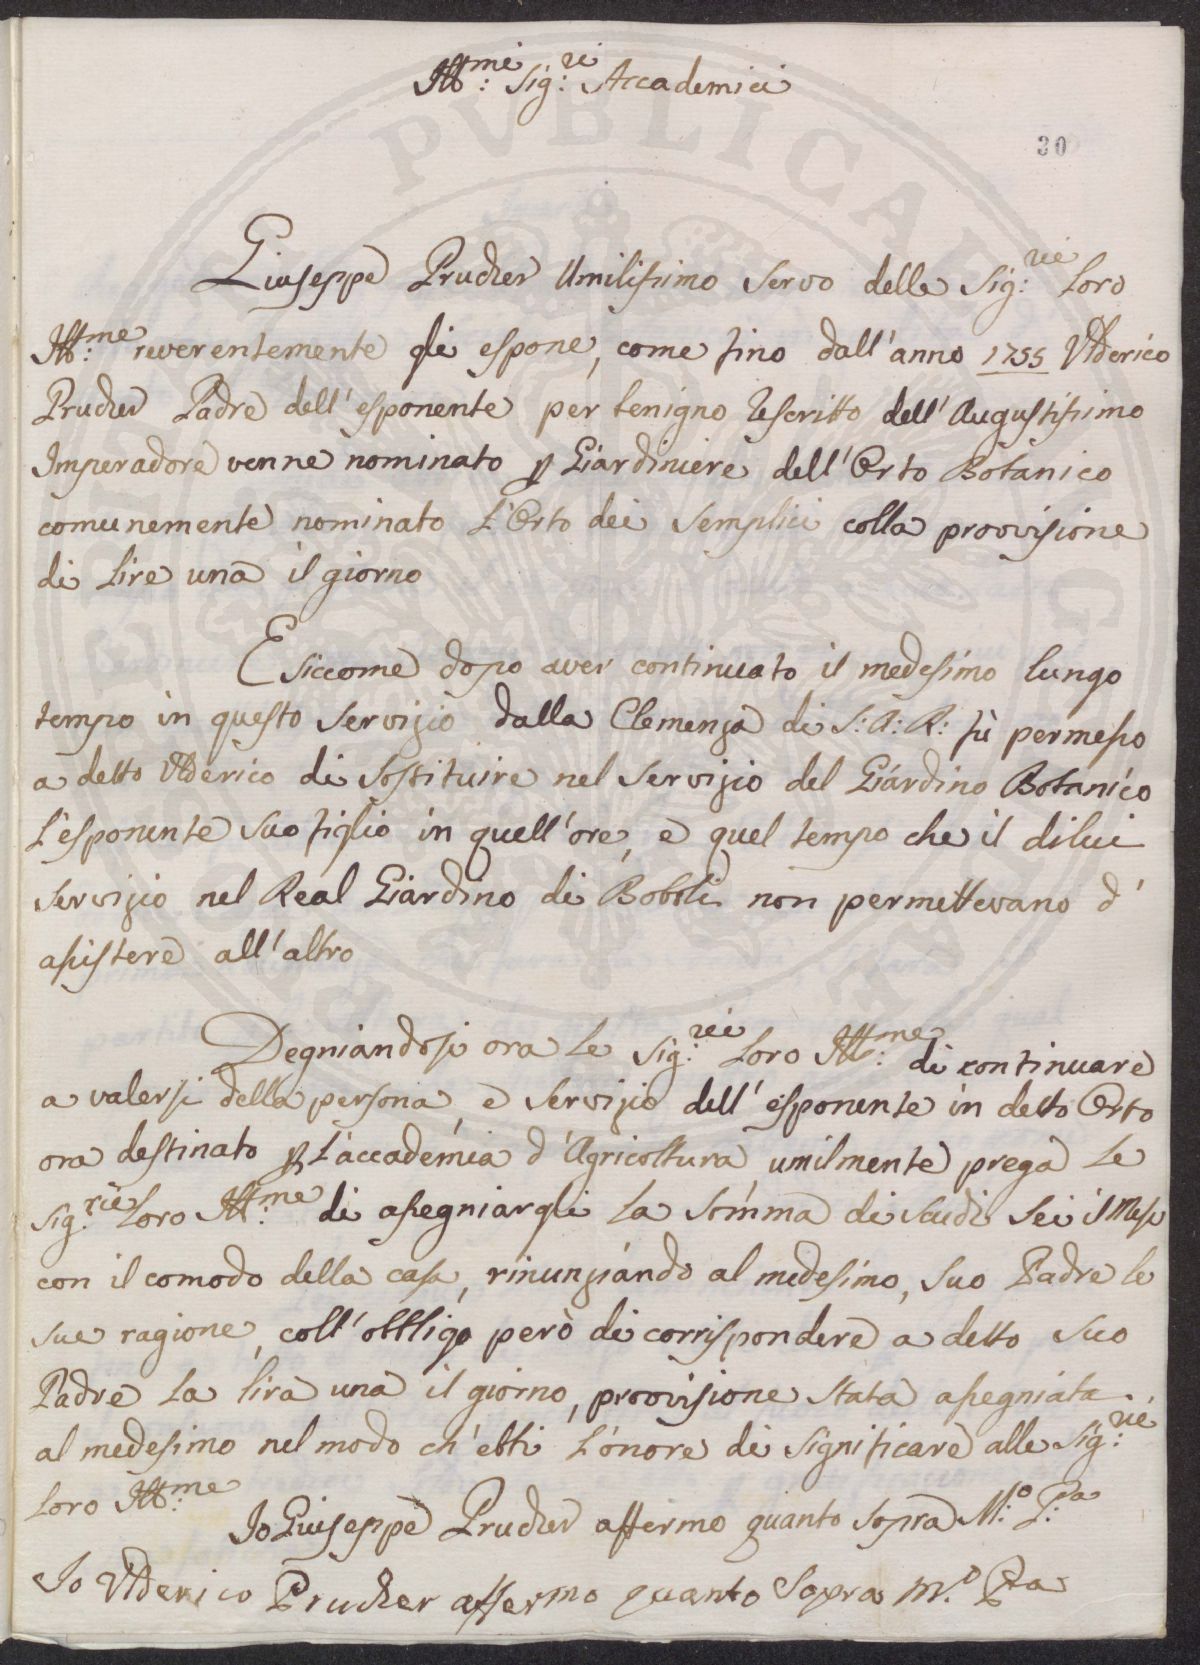 Ill:mi Sig:ri Accademici
30
Giuseppe Prucher Umilissimo Servo delle Sig:rie Loro
Ill:me reverentemente gli espone, come fino dall'anno 1755 Ulderico
Prucher Padre dell'esponente per benigno Rescritto dell'Augustissimo
Imperadore venne nominato p Giardiniere dell'Orto Botanico
comunemente nominato L'Orto dei Semplici colla provvisione
di Lire una il giorno
E siccome dopo aver continuato il medesimo lungo
tempo in questo Servizio dalla Clemenza di S: A: R: fù permesso
a detto Ulderico di Sostituire nel Servizio del Giardino Botanico
L'esponente Suo figlio in quell'ore, e quel tempo che il dilui
Servizio nel Real Giardino di Boboli non permettevano d'
assistere all'altro
Degniandosi ora Le Sig:rie Loro Ill:me di continuare
a valersi della persona, e Servizio dell'esponente in detto Orto
ora destinato p L'accademia d'Agricoltura umilmente prega Le
Sig:rie Loro Ill:me di assegniargli La Somma di Scudi Sei il Mese
con il comodo della casa, rinunziando al medesimo, Suo Padre le
sue ragione, coll'obbligo però di corrispondere a detto Suo
Padre La lira una il giorno, provvisione Stata assegniata
al medesimo nel modo ch'ebbi L'onore di Significare alle Sig:rie
Loro Ill:me
Io Giuseppe Prucher affermo quanto Sopra M:o P:a
Io Ulderico Prucher affermo quanto Sopra M.o Pa